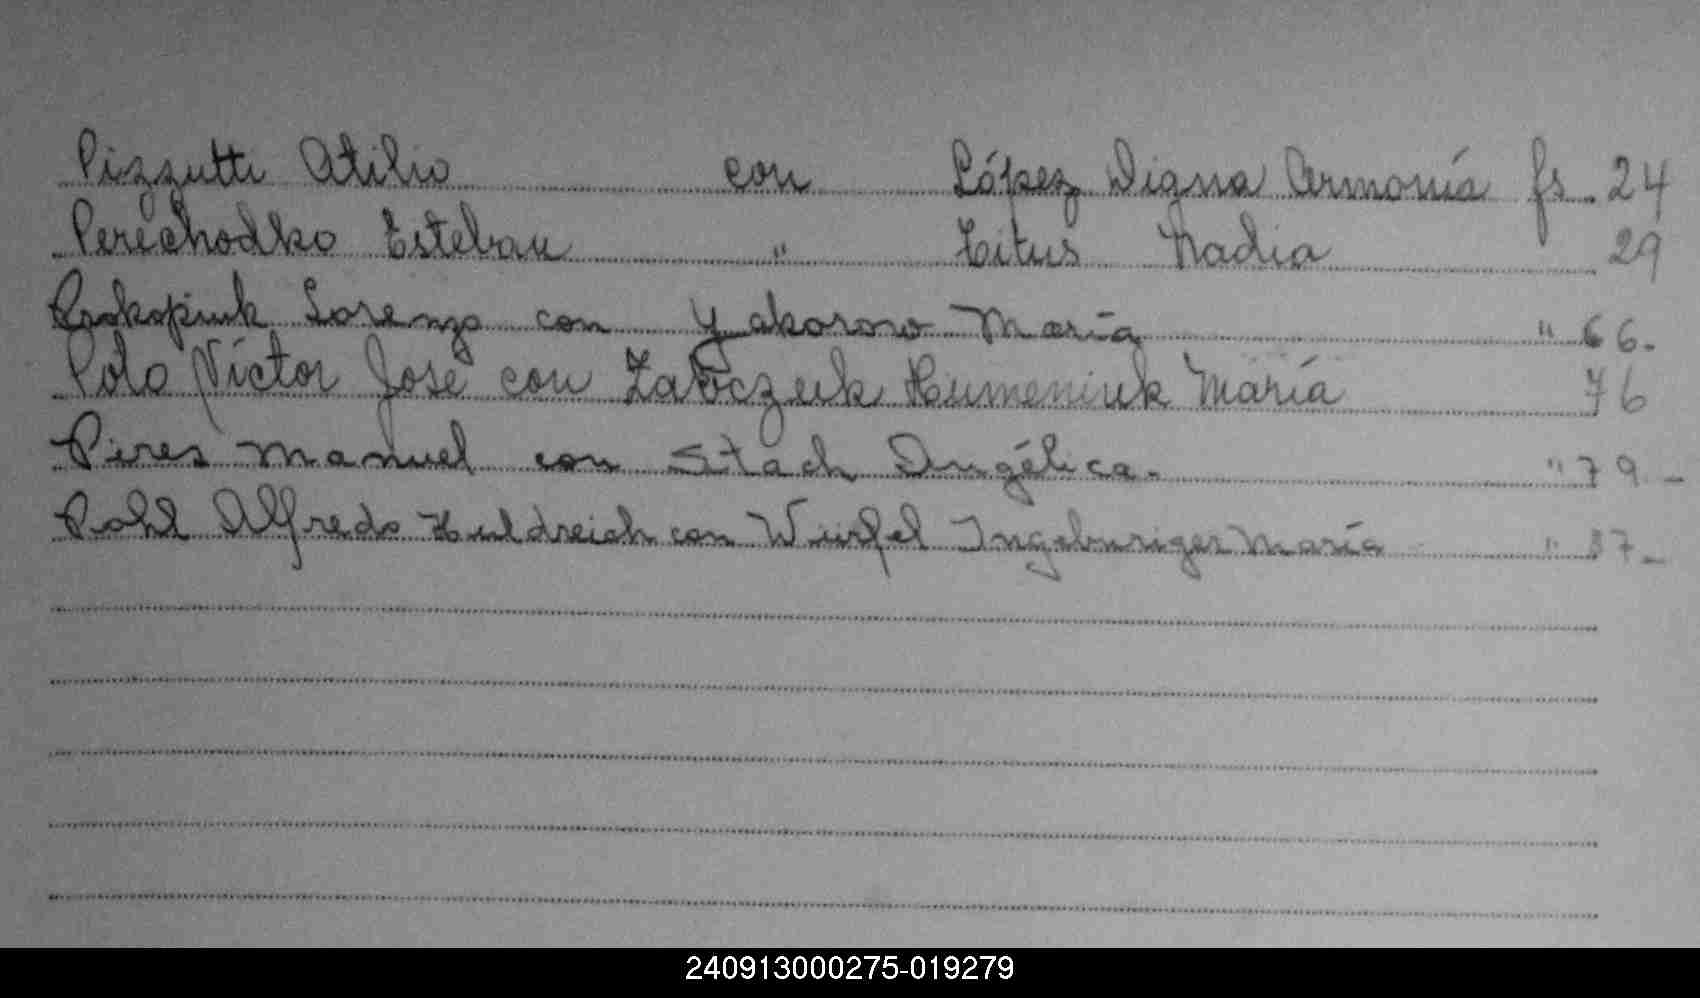 Pizzutti Atilio con López Digna Armonía fs. 24
Perechodko Esteban " Titus Nadia 29
Prokopiuk Lorenzo con Yakorow María " 66.-
Polo Víctor José con Zabczuk Humeniuk María 76
Pires Manuel con Stach Angélica.- " 79.-
Pohl Alfredo Huldreich con Würfel Ingeburiger María " 87.-
240913000275-019279